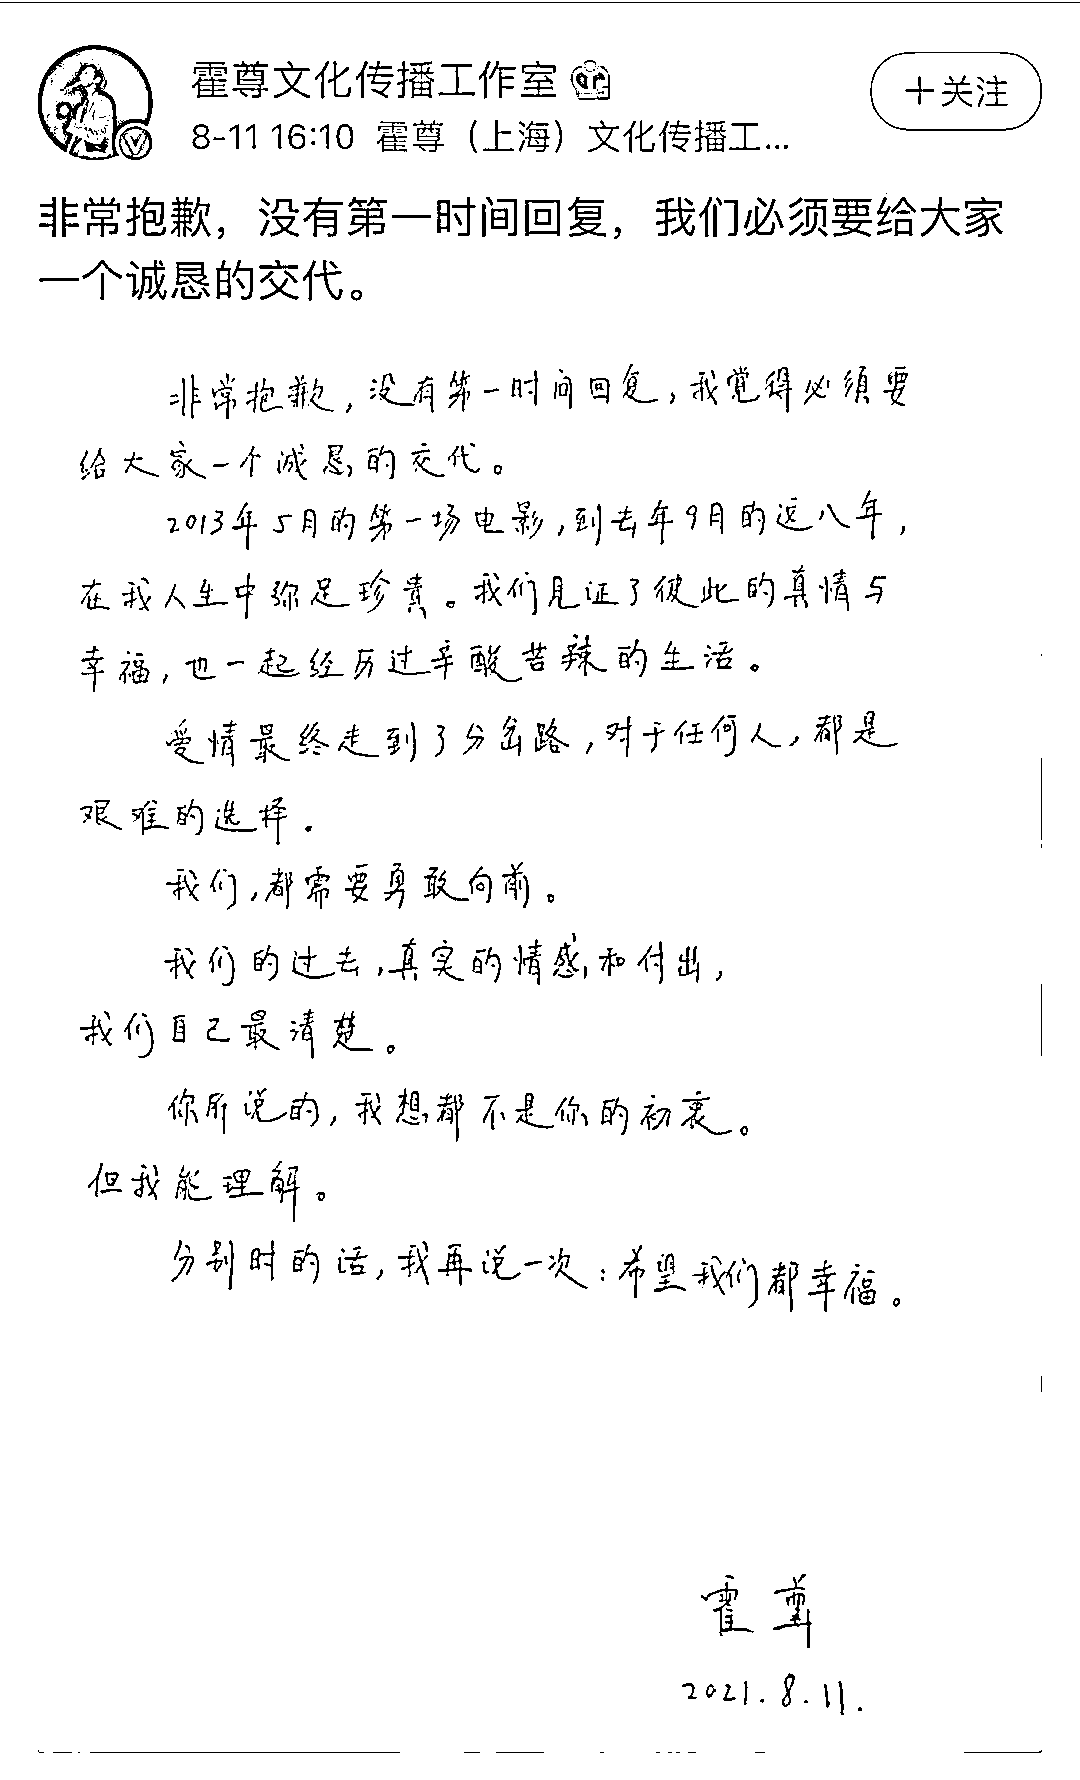 霍尊文化传播工作室
+关注
8-11 16:10 霍尊（上海）文化传播工...
非常抱歉，没有第一时间回复，我们必须要给大家
一个诚恳的交代。
非常抱歉，没有第一时间回复，我觉得必须要
给大家一个诚恳的交代。
2013年5月的第一场电影，到去年9月的这八年，
在我人生中弥足珍贵。我们见证了彼此的真情与
幸福，也一起经历过辛酸苦辣的生活。
爱情最终走到了分岔路，对于任何人，都是
艰难的选择.
我们，都需要勇敢向前。
我们的过去，真实的情感和付出，
我们自己最清楚。
你所说的，我想都不是你的初衷。
但我能理解。
分别时的话，我再说一次：希望我们都幸福。
霍尊
2021.8.11.